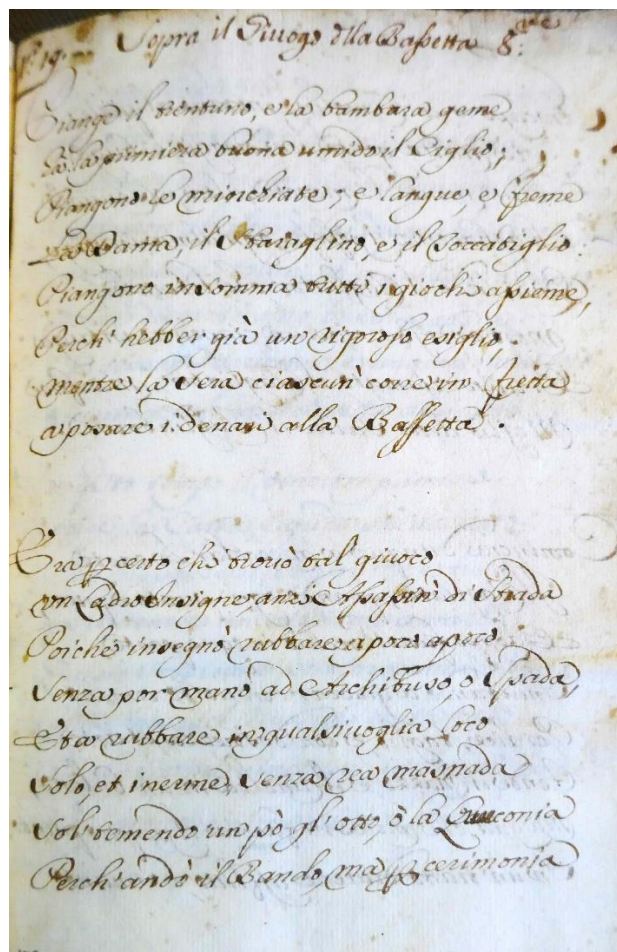 Sopra il Giuogo dlla Bassetta 8.ve
p.a 19.
Piange il trentuno, e la bambara geme
Hà la primiera buona umido il Ciglio;
Piangono le minchiate; e langue, e freme
La Dama, il Sbaraglino, e il Toccadiglio.
Piangono in somma tutti i giochi assieme,
Perch' hebber già un rigoroso esiglio,
mentre la sera ciascun' corre in fretta
a posare i denari alla Bassetta.
Era p certo chi trovò tal' giuoco
un Ladro Insigne, anzi Assassin' di Strada
Poiche insegnò rubbare a poco a poco
Senza por mano ad Archibuso, o Spada,
Et a rubbare in qualsivoglia loco
Solo, et inerme senza rea masnada
Sol' temendo un pò gl' otto, ò la
Perch' andò il Bando, ma p cerimonia